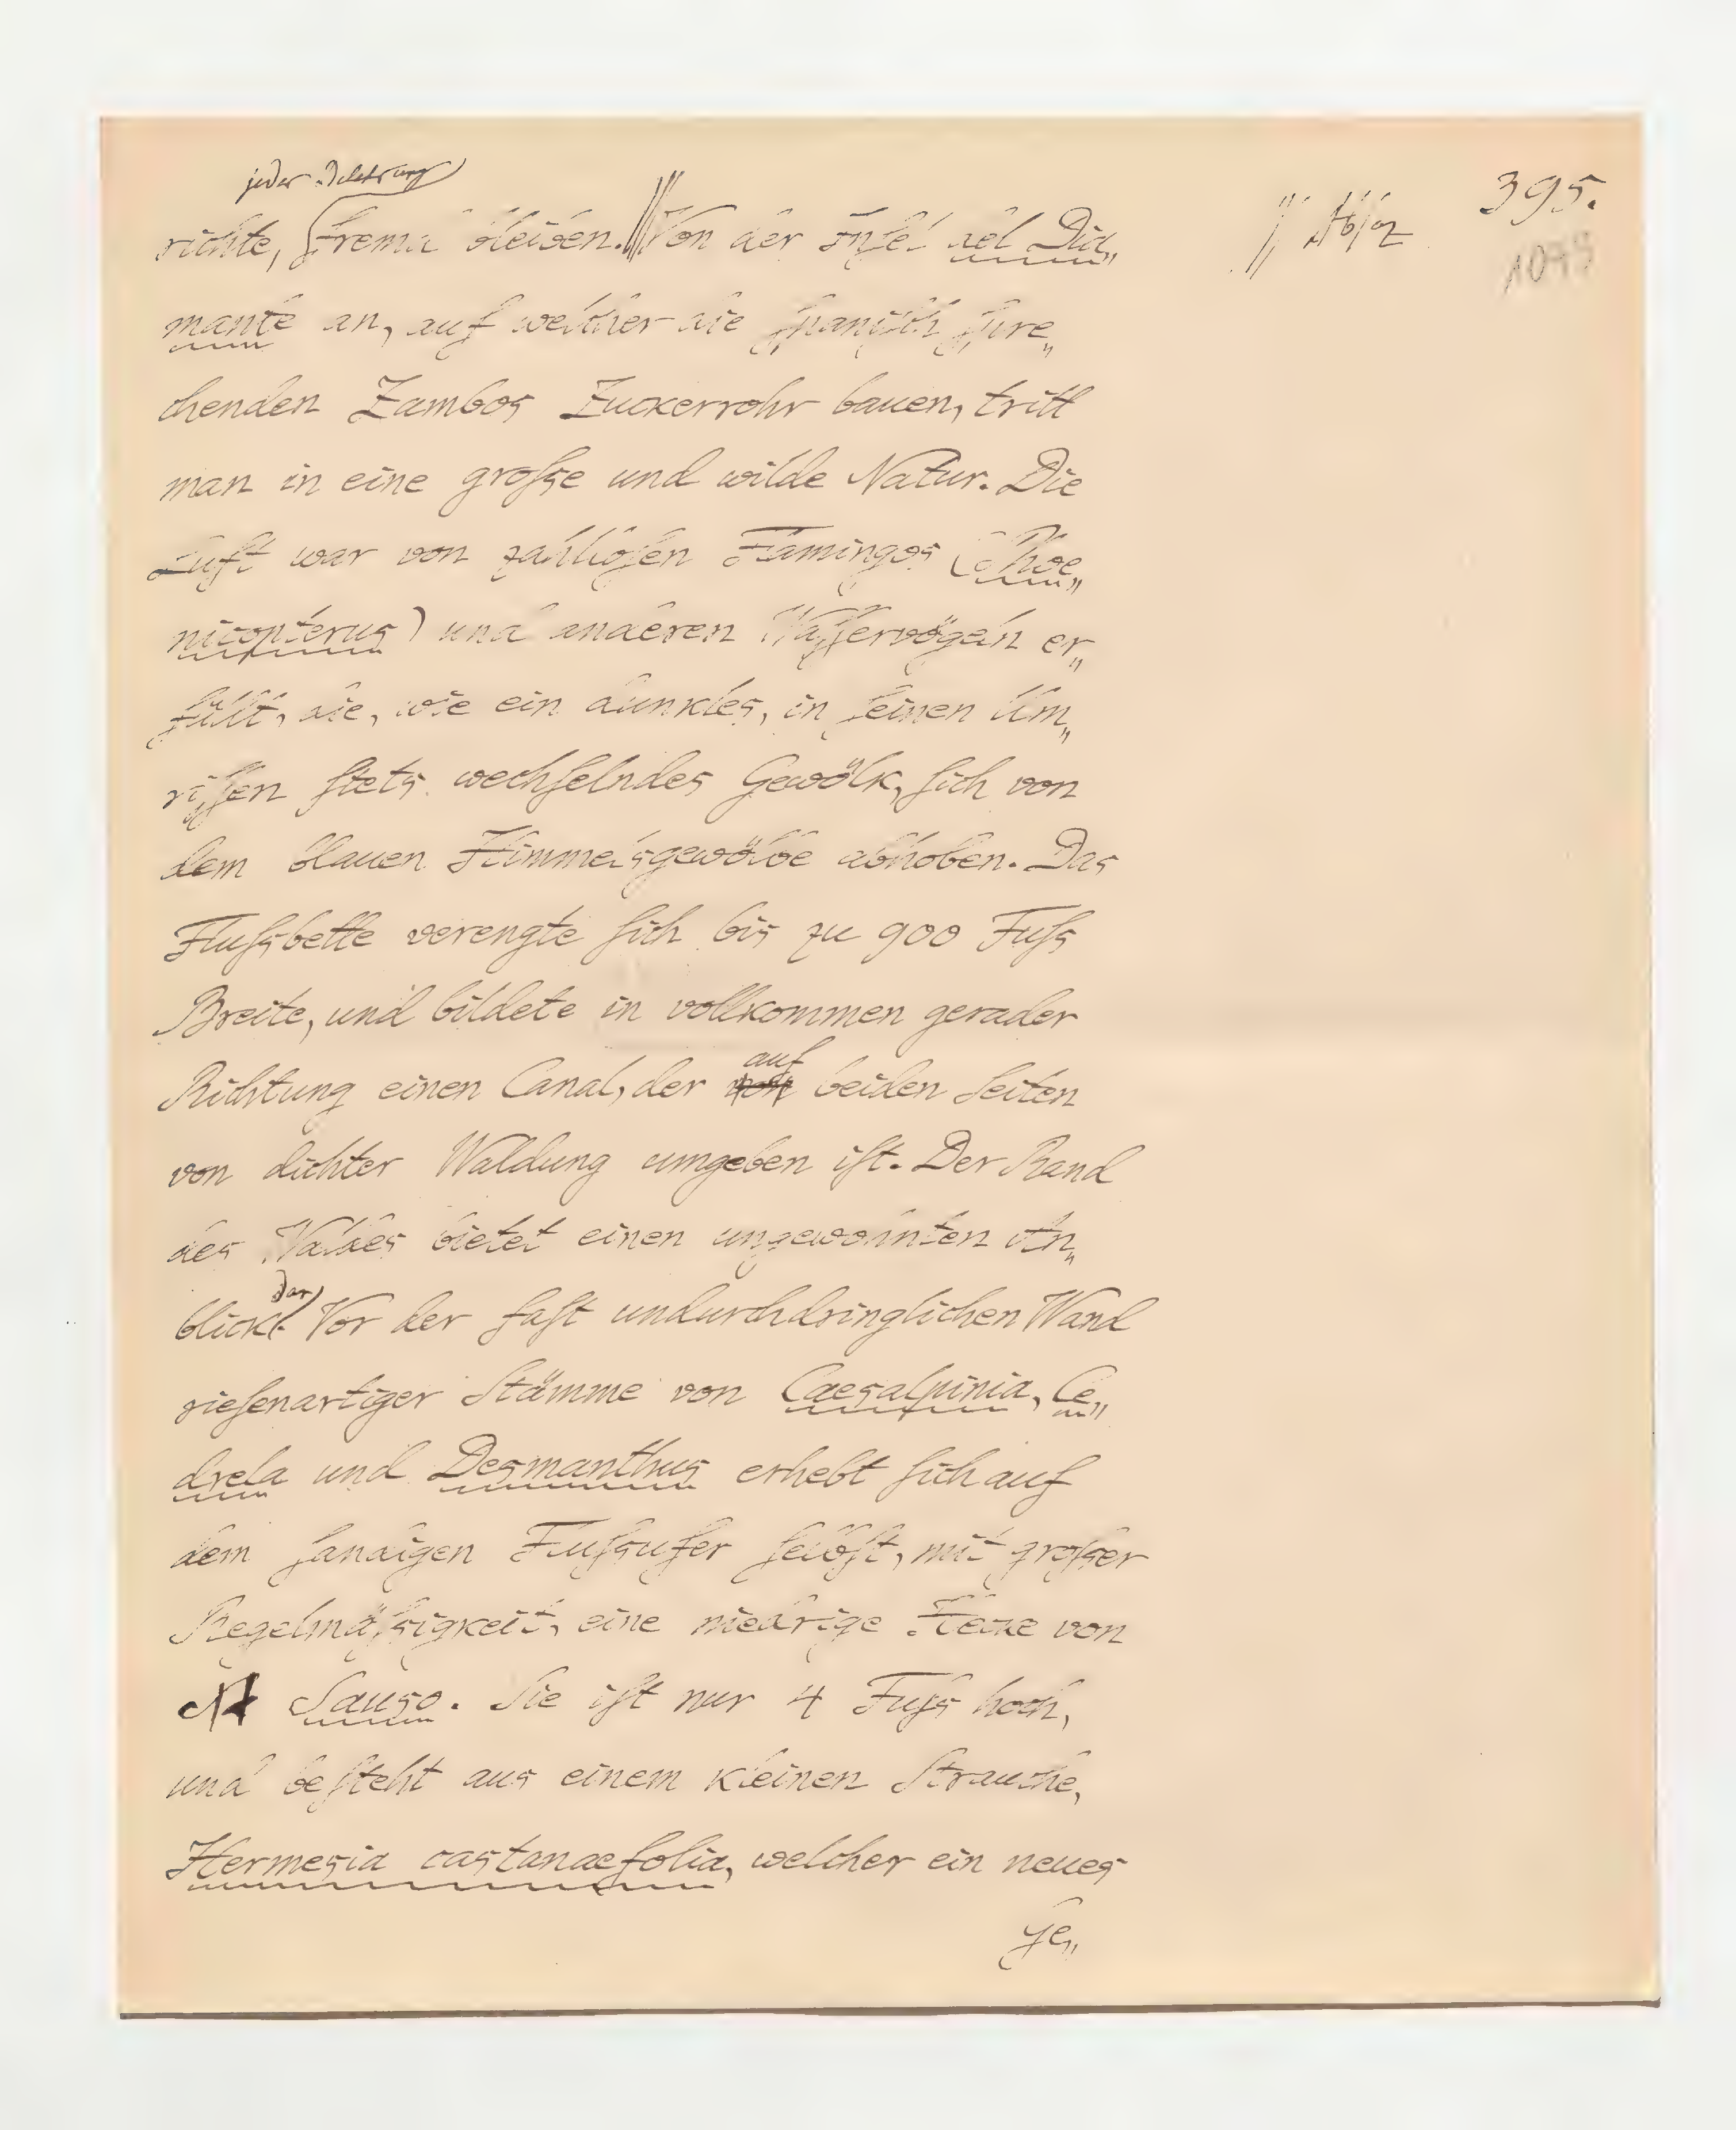 395.
1095
jeder Dichtung
richte, fremd bleiben. Von der Inſel del Dia„
Abſatz
mante an, auf welcher die ſpaniſch ſpre„
chenden Zambos Zuckerrohr bauen, tritt
man in eine groſse und wilde Natur. Die
Luft war von zahlloſen Flamingos (Phoe„
nicopterus) und anderen Waſſervögeln er„
füllt, die, wie ein dunkles, in ſeinen Um„
riſſen ſtets wechſelndes Gewölk, ſich von
dem blauen Himmelsgewölbe abhoben. Das
Fluſsbette verengte ſich bis zu 900 Fuſs
Breite, und bildete in vollkommen gerader
auf
Richtung einen Canal, der von beiden Seiten
von dichter Waldung umgeben iſt. Der Rand
des Waldes bietet einen ungewohnten An„
dar
blick. Vor der faſt undurchdringlichen Wand
rieſenartiger Stämme von Caesalpinia, Ce„
drela und Desmanthus erhebt ſich auf
dem ſandigen Fluſsufer ſelbſt, mit groſser
Regelmäſsigkeit, eine niedrige Hecke von
Sauso. Sie iſt nur 4 Fuſs hoch,
und beſteht aus einem kleinen Strauche,
Hermesia castanaefolia, welcher ein neues
Ge„